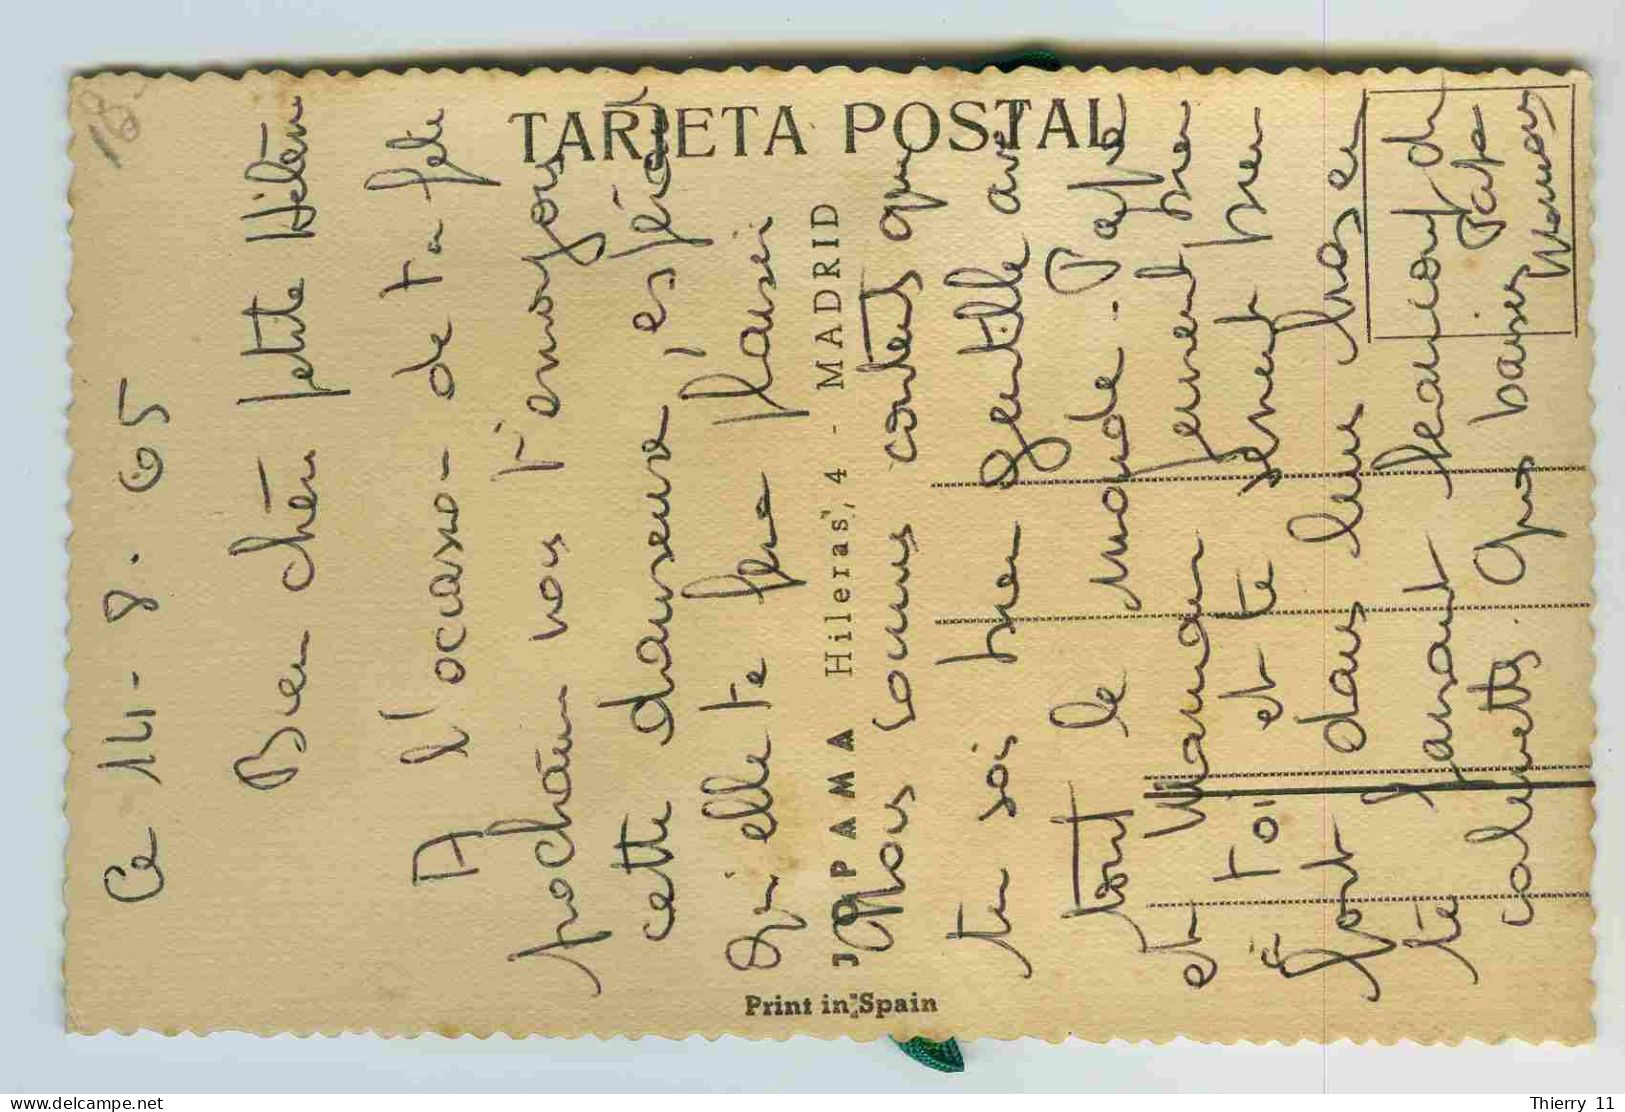 18
Ce 14-8.65
Bien chère petite Hélène
A l'occasion de ta fête
prochaine nous t'envoyons
cette danseuse, espérant
qu'elle te fera plaisir
Nous sommes contents que
tu sois bien gentille avec
tout le monde. Papa
et Maman pensent bien
à toi et te serrent bien
fort dans leurs bras en
te faisant beaucoup de
calinettes. Gros baisers
Papa
Maman
TARJETA POSTAL
JOPAMA Hileras, 4 - MADRID
Print in Spain
delcampe.net
Thierry 11